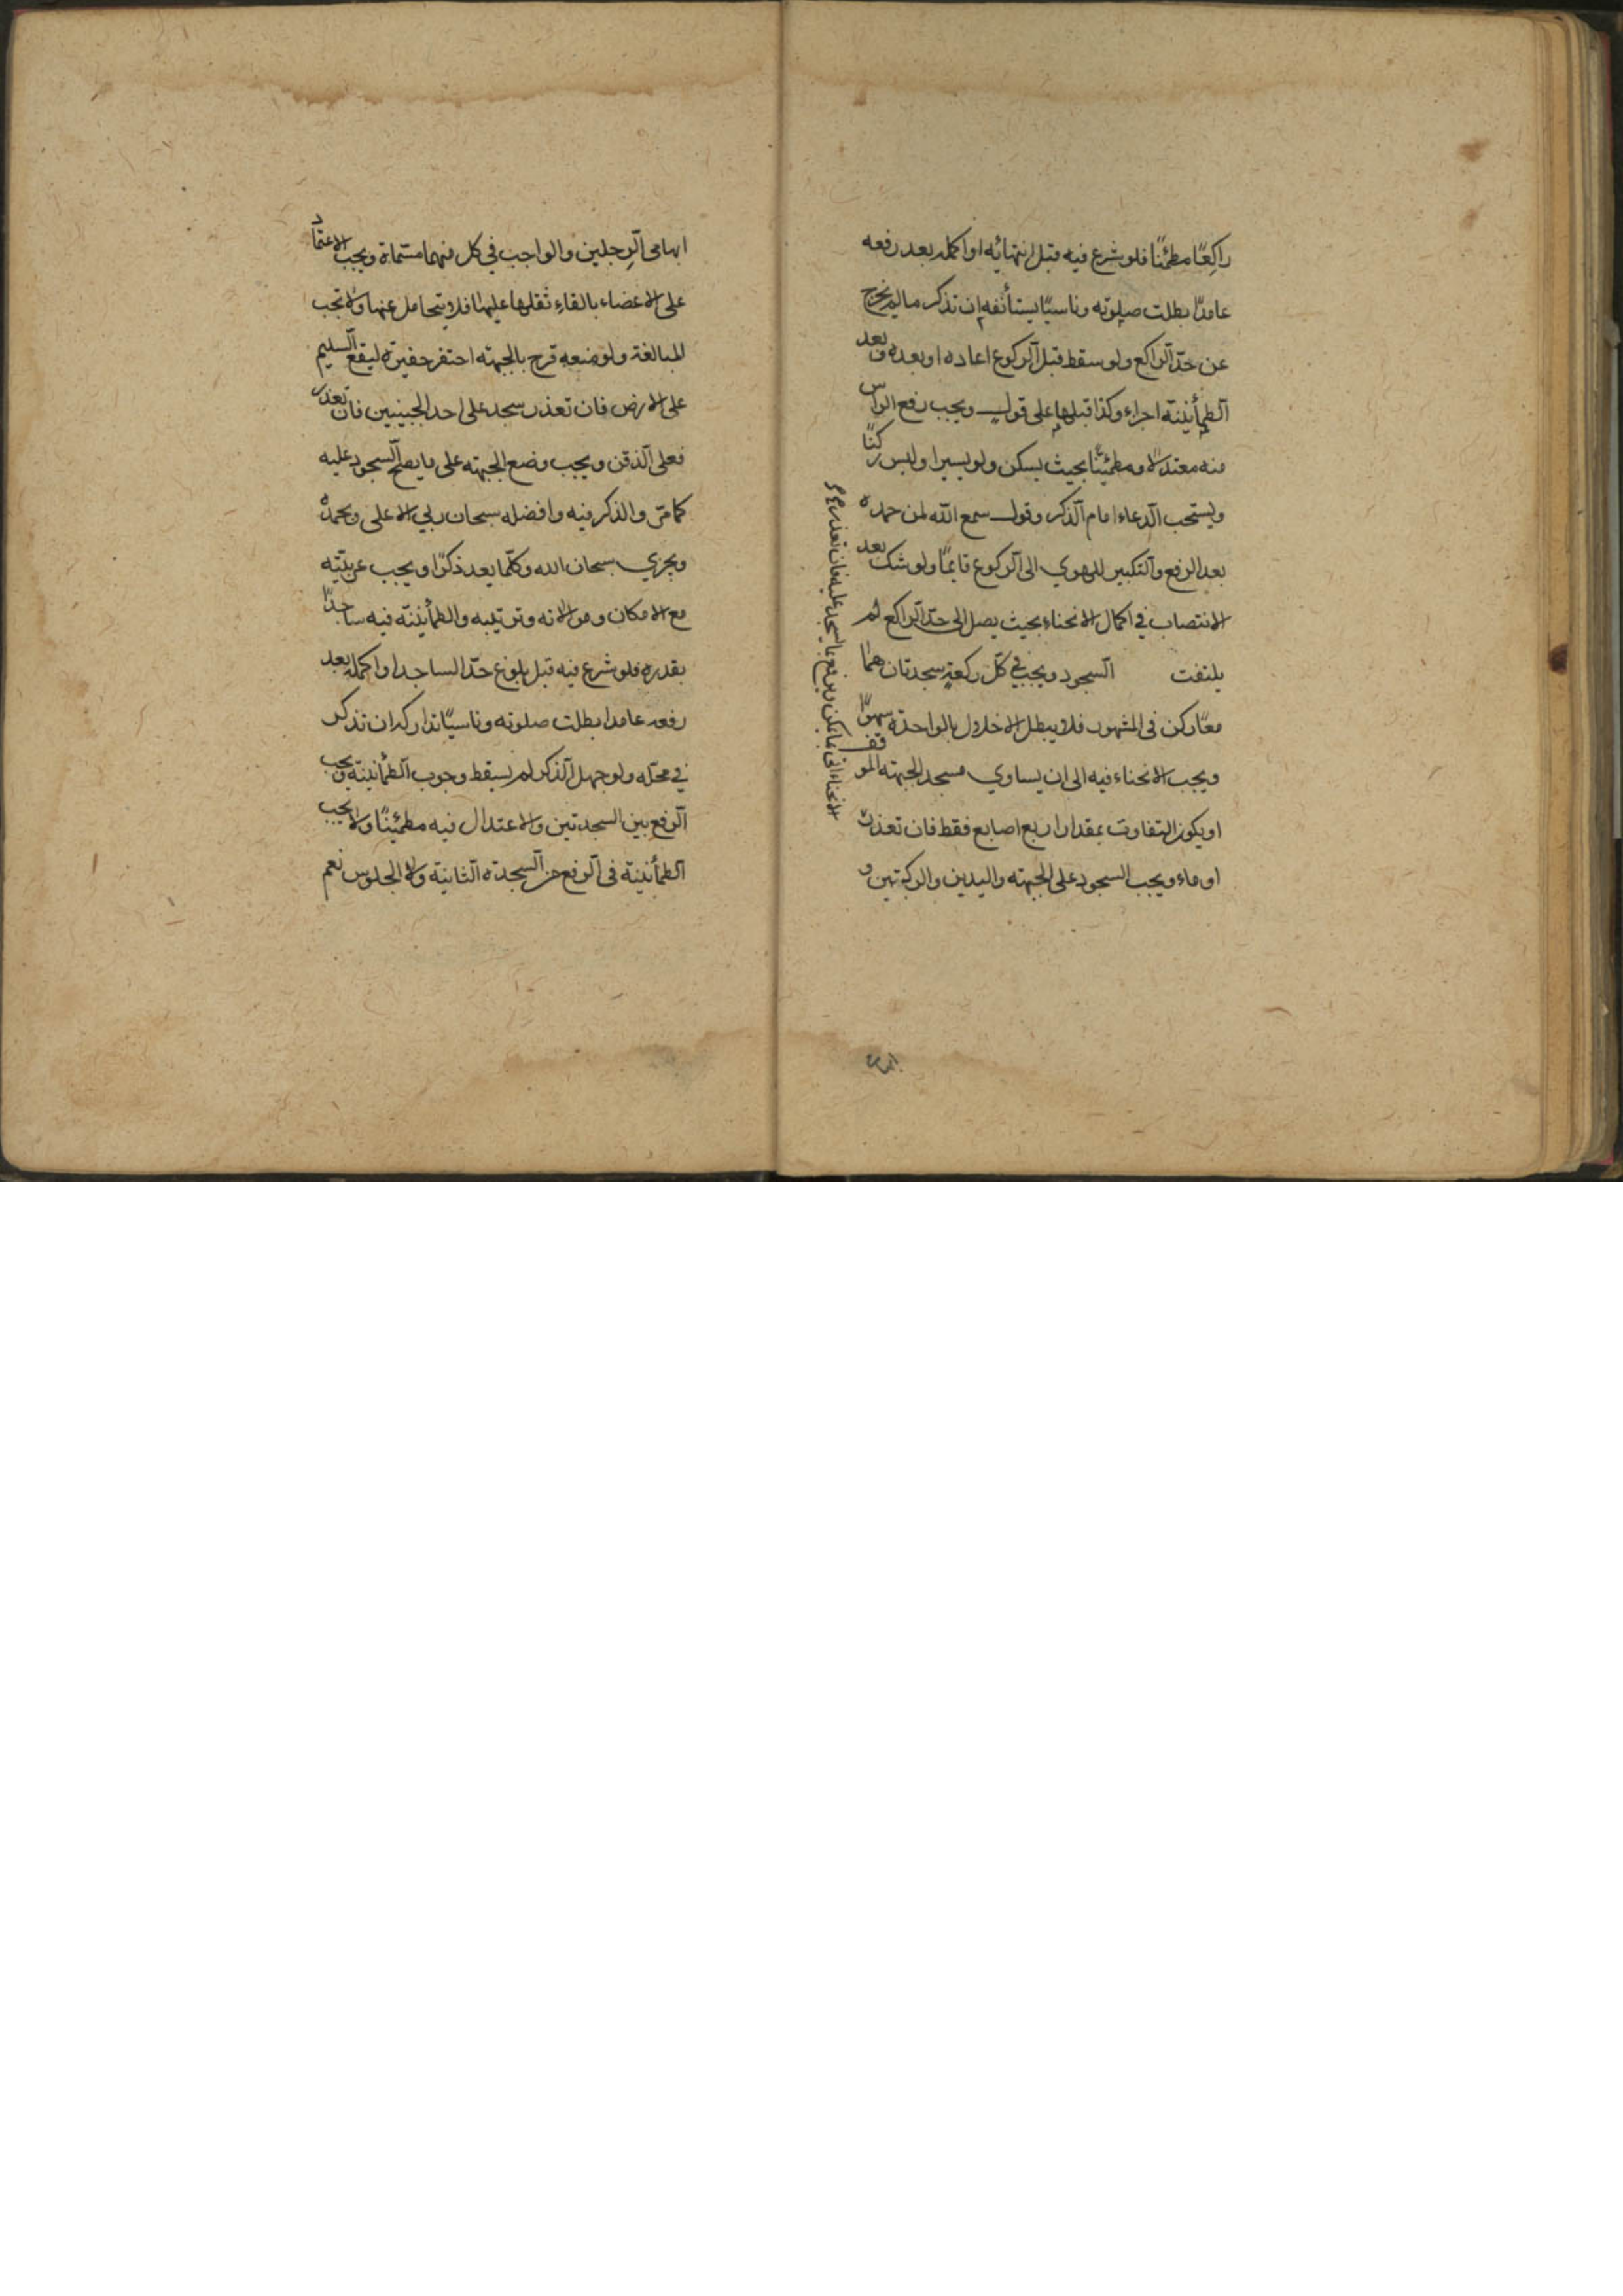 راكعًا مطمئنًا فلو شرع فيه قبل انتهائه او اكمله بعد رفعه
عامدًا بطلت صلوته وناسيًا يستأنفه ان تذكر ما لم يخرج
عن حدّ الراكع ولو سقط قبل الركوع اعاده او بعده وبعد
الطمأنينة اجزاء وكذا قبلها على قول ويجب رفع الراس
منه معتدلا ومطمئنًا بحيث يسكن ولو يسيرا وليس ركنًا
ويستحب الدعاء امام الذكر وقول سمع الله لمن حمده
بعد الرفع والتكبير للهوي الى الركوع قايمًا ولو شك بعد
الانتصاب في اكمال الانحناء بحيث يصل الى حدّ الراكع لم
يلتفت السجود ويجب في كلّ ركعةٍ سجدتان هما
معًا ركن فى المشهور فلا يبطل الاخلال بالواحدة سهوًا
ويجب الانحناء فيه الى ان يساوي مسجد الجبهته الموقف
او يكون التفاوت بمقدار اربع اصابع فقط فان تعذرت
اوماء ويجب السجود على الجبهته واليدين والركبتين و
الانحناء اتى بما يمكن ويرفع ما يسجد عليه فان تعذر
ابهامى الرجلين والواجب في كل منهما مسماه ويجب الاعتماد
على الاعضاء بالقاءِ ثقلها عليها فلا يتحامل عنها ولا تجب
المبالغة ولو منعه قرح بالجبهته احتفر حفيرة ليقع السليم
على الارض فان تعذر سجد على احد الجبينين فان تعذر
فعلى الذقن ويجب وضع الجبهته على ما يصح السجود عليه
كما مرّ والذكر فيه وافضله سبحان ربي الاعلى وبحمده
ويجزي سبحان الله وكلّما يعد ذكرًا ويجب عربيّته
مع الامكان وموالاته وترتيبه والطمأنينة فيه ساجدًا
بقدره فلو شرع فيه قبل بلوغ حدّ الساجد او اكمله بعد
رفعه عامدا بطلت صلوته وناسيًا تداركه ان تذكر
في محلّه ولو جهل الذكر لم يسقط وجوب الطمأنينة ويجب
الرفع بين السجدتين والاعتدال فيه مطمئنًا ولا يجب
الطمأنينة فى الرفع من السجدة الثانية ولا الجلوس نعم